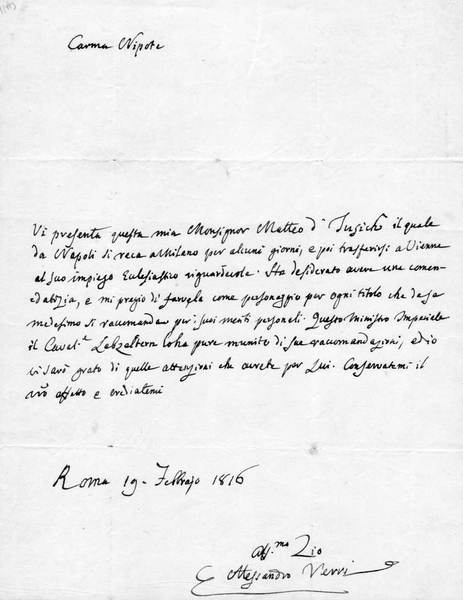 Carma Nipote
Vi presenta questa mia Monsignor Matteo d' Jusich il quale
da Napoli si reca a Milano per alcuni giorni, e poi trasferirsi a Vienne
al suo impiego Eclesiastico riguardevole. Ha desiderato avere una comen-
datizia, e mi pregio di farvele come personaggio per ogni titolo che da se
medesimo si racomanda per i suoi meriti personali. Questo Ministro Imperiale
il Caval.e Lebzeltern lo ha pure munito di sue racomandazioni, ed io
vi sarò grato di quelle attenzioni che avrete per Lui. Conservatemi il
vr̃o affetto e credetemi
Roma 19. Febbrajo 1816
Aff.mo Zio
Alessandro Verri